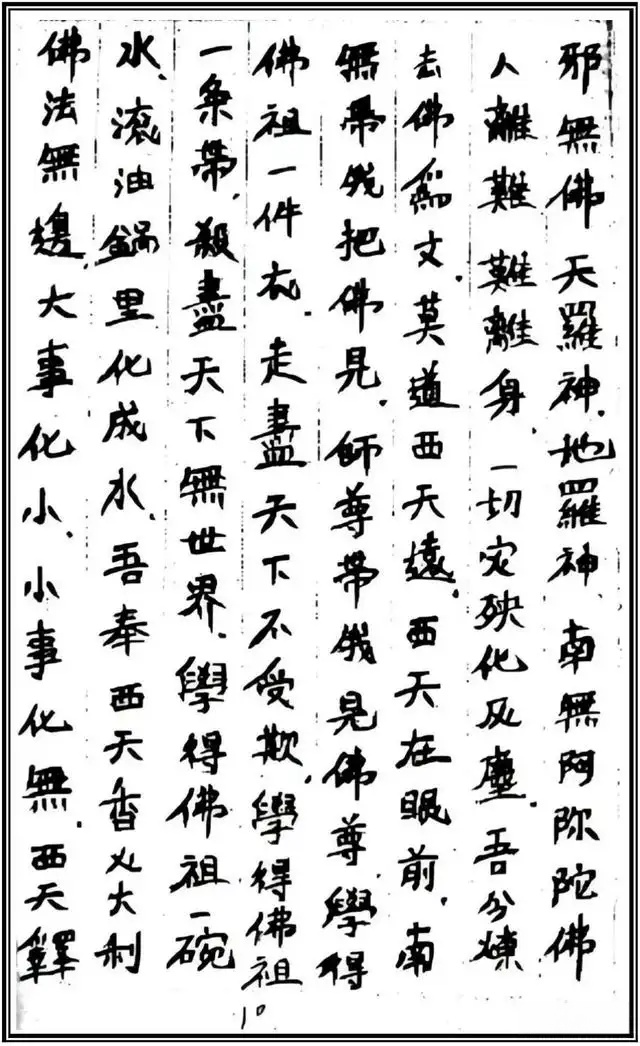 邪無佛天羅神.地羅神.南無阿弥陀佛
人離難難離身.一切灾殃化灰塵.吾今煉
去佛爲文.莫道西天遠.西天在眼前.南
無帶俄把佛見.師尊帶俄見佛尊.學得
佛祖一件衣.走盡天下不受欺.學得佛祖
一条帶.殺盡天下無世界.學得佛祖一碗
水.滚油鍋里化成水.吾奉西天香火大刹
佛法無邊.大事化小.小事化無.西天釋
10